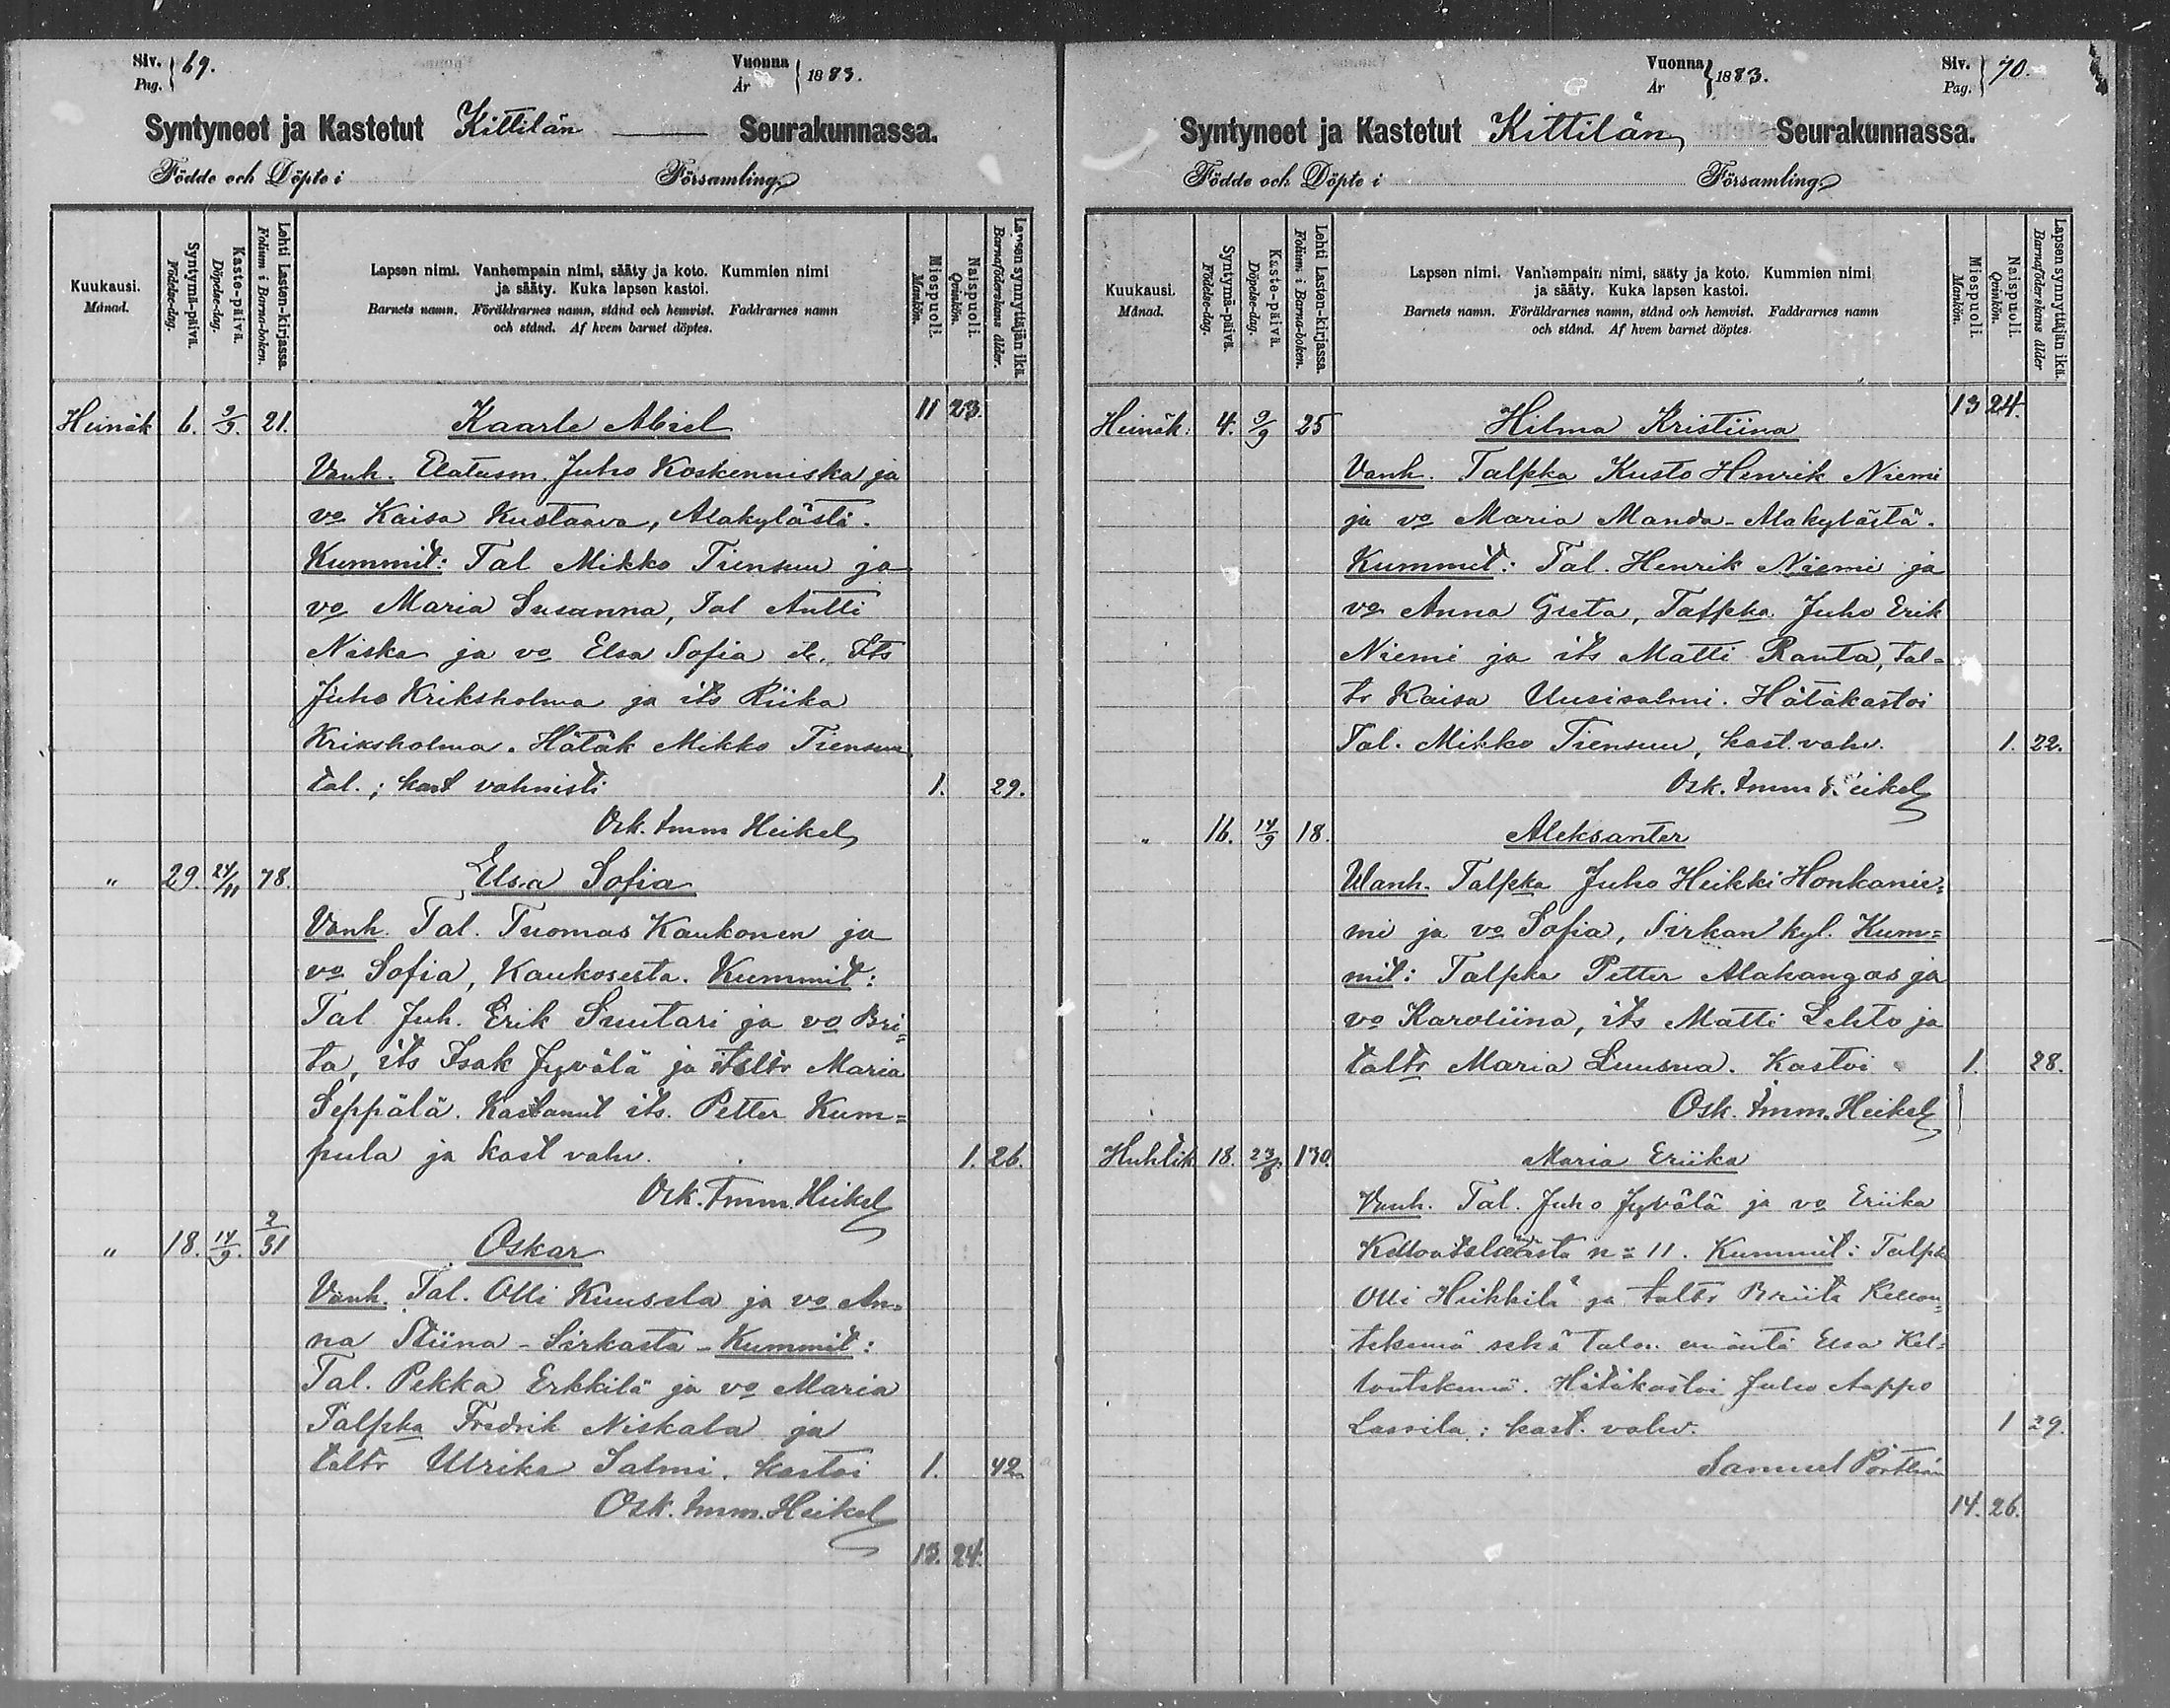 Siv. Pag. } 69.
Vuonna År } 1883.
Syntyneet ja Kastetut Kittilän Seurakunnassa.
Födde och Döpte i Församling.
Kuukausi. Månad.
Syntymä-päivä. Födelse-dag.
Kaste-päivä. Döpelse-dag.
Lehti Lasten-kirjassa. Folium i Barna-boken.
Lapsen nimi. Vanhempain nimi, sääty ja koto. Kummien nimi
ja sääty. Kuka lapsen kastoi.
Barnets namn. Föräldrarnes namn, stånd och hemvist. Faddrarnes namn
och stånd. Af hvem barnet döptes.
Miespuoli. Mankön.
Naispuoli. Qvinkön.
Lapsen synnyttäjän ikä. Barnaföderskans ålder.
11 23.
Heinäk 6. 9/9. 21. Kaarle Abiel
Vanh. Elatusm. Juho Koskenniska ja
vo Kaisa Kustaava, Alakylästä.
Kummit: Tal Mikko Tiensuu ja
vo Maria Susanna, Tal Antti
Niska ja vo Elsa Sofia Its
Juho Kriksholma ja its Riika
Kriksholma. Hätäk Mikko Tiensuu
tal.; kast vahvisti 1. 29.
Osk. Imm Heikel
" 29. 24/11 78. Elsa Sofia
Vanh. Tal. Tuomas Kaukonen ja
vo Sofia, Kaukosesta. Kummit:
Tal Juh. Erik Suutari ja vo Bri=
ta, its Isak Jyvälä ja itsltr Maria
Seppälä. Kastanut its. Petter Kum=
pula ja kast vahv. 1. 26.
Osk. Imm. Heikel
" 18. 14/9. 2/31 Oskar
Vanh. Tal. Olli Kuusela ja vo An=
na Stiina - Sirkasta - Kummit:
Tal. Pekka Erkkilä ja vo Maria
Talpka Fredrik Niskala ja
taltr Ulrika Salmi. kastoi 1. 42.
Osk. Imm. Heikel
13. 24.
Vuonna År } 1883.
Siv. Pag. } 70.
Syntyneet ja Kastetut Kittilän Seurakunnassa.
Födde och Döpte i Församling.
Kuukausi. Månad.
Syntymä-päivä. Födelse-dag.
Kaste-päivä. Döpelse-dag.
Lehti Lasten-kirjassa. Folium i Barna-boken.
Lapsen nimi. Vanhempain nimi, sääty ja koto. Kummien nimi
ja sääty. Kuka lapsen kastoi.
Barnets namn. Föräldrarnes namn, stånd och hemvist. Faddrarnes namn
och stånd. Af hvem barnet döptes.
Miespuoli. Mankön.
Naispuoli. Qvinkön.
Lapsen synnyttäjän ikä. Barnaföderskans ålder
13 24.
Heinäk. 4. 9/9 25 Hilma Kristiina
Vanh. Talpka Kusto Henrik Niemi
ja vo Maria Manda - Alakylästä.
Kummit: Tal. Henrik Niemi ja
vo Anna Greta, Talpka Juho Erik
Niemi ja its Matti Ranta, tal=
tr Kaisa Uusisalmi. Hätäkastoi
Tal. Mikko Tiensuu, kast. vahv. 1. 22.
Osk. Imm Heikel
" 16. 14/9 18. Aleksanter
Wanh. Talpka Juho Heikki Honkanie=
mi ja vo Sofia, Sirkan kyl. Kum=
mit: Talpka Petter Alakangas ja
vo Karoliina, its Matti Lehto ja
taltr Maria Luusua. Kastoi 1. 28.
Osk. Imm. Heikel
Huhtik 18. 130. Maria Eriika
Vanh. Tal. Juho Jyvälä ja vo Eriika
n:o 11. Kummit: Talpka
Olli Heikkilä ja taltr Briita Kellon=
tekemä sekä talon emäntä Elsa Kel=
lontekemä. Hätäkastoi Juho Aappo
Lassila; kast. vahv. 1 29.
Samuel
14. 26.